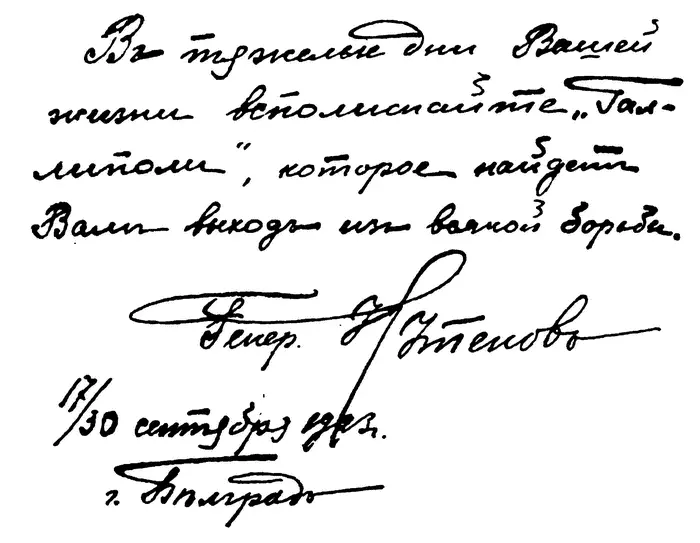 Въ тяжелые дни Вашей
жизни вспоминайте „Гал-
липоли“, которое найдетъ
Вамъ выходъ изъ всякой борьбы.
Генер. Кутеповъ
17/30 сентября 1923 г.
г. Бѣлградъ